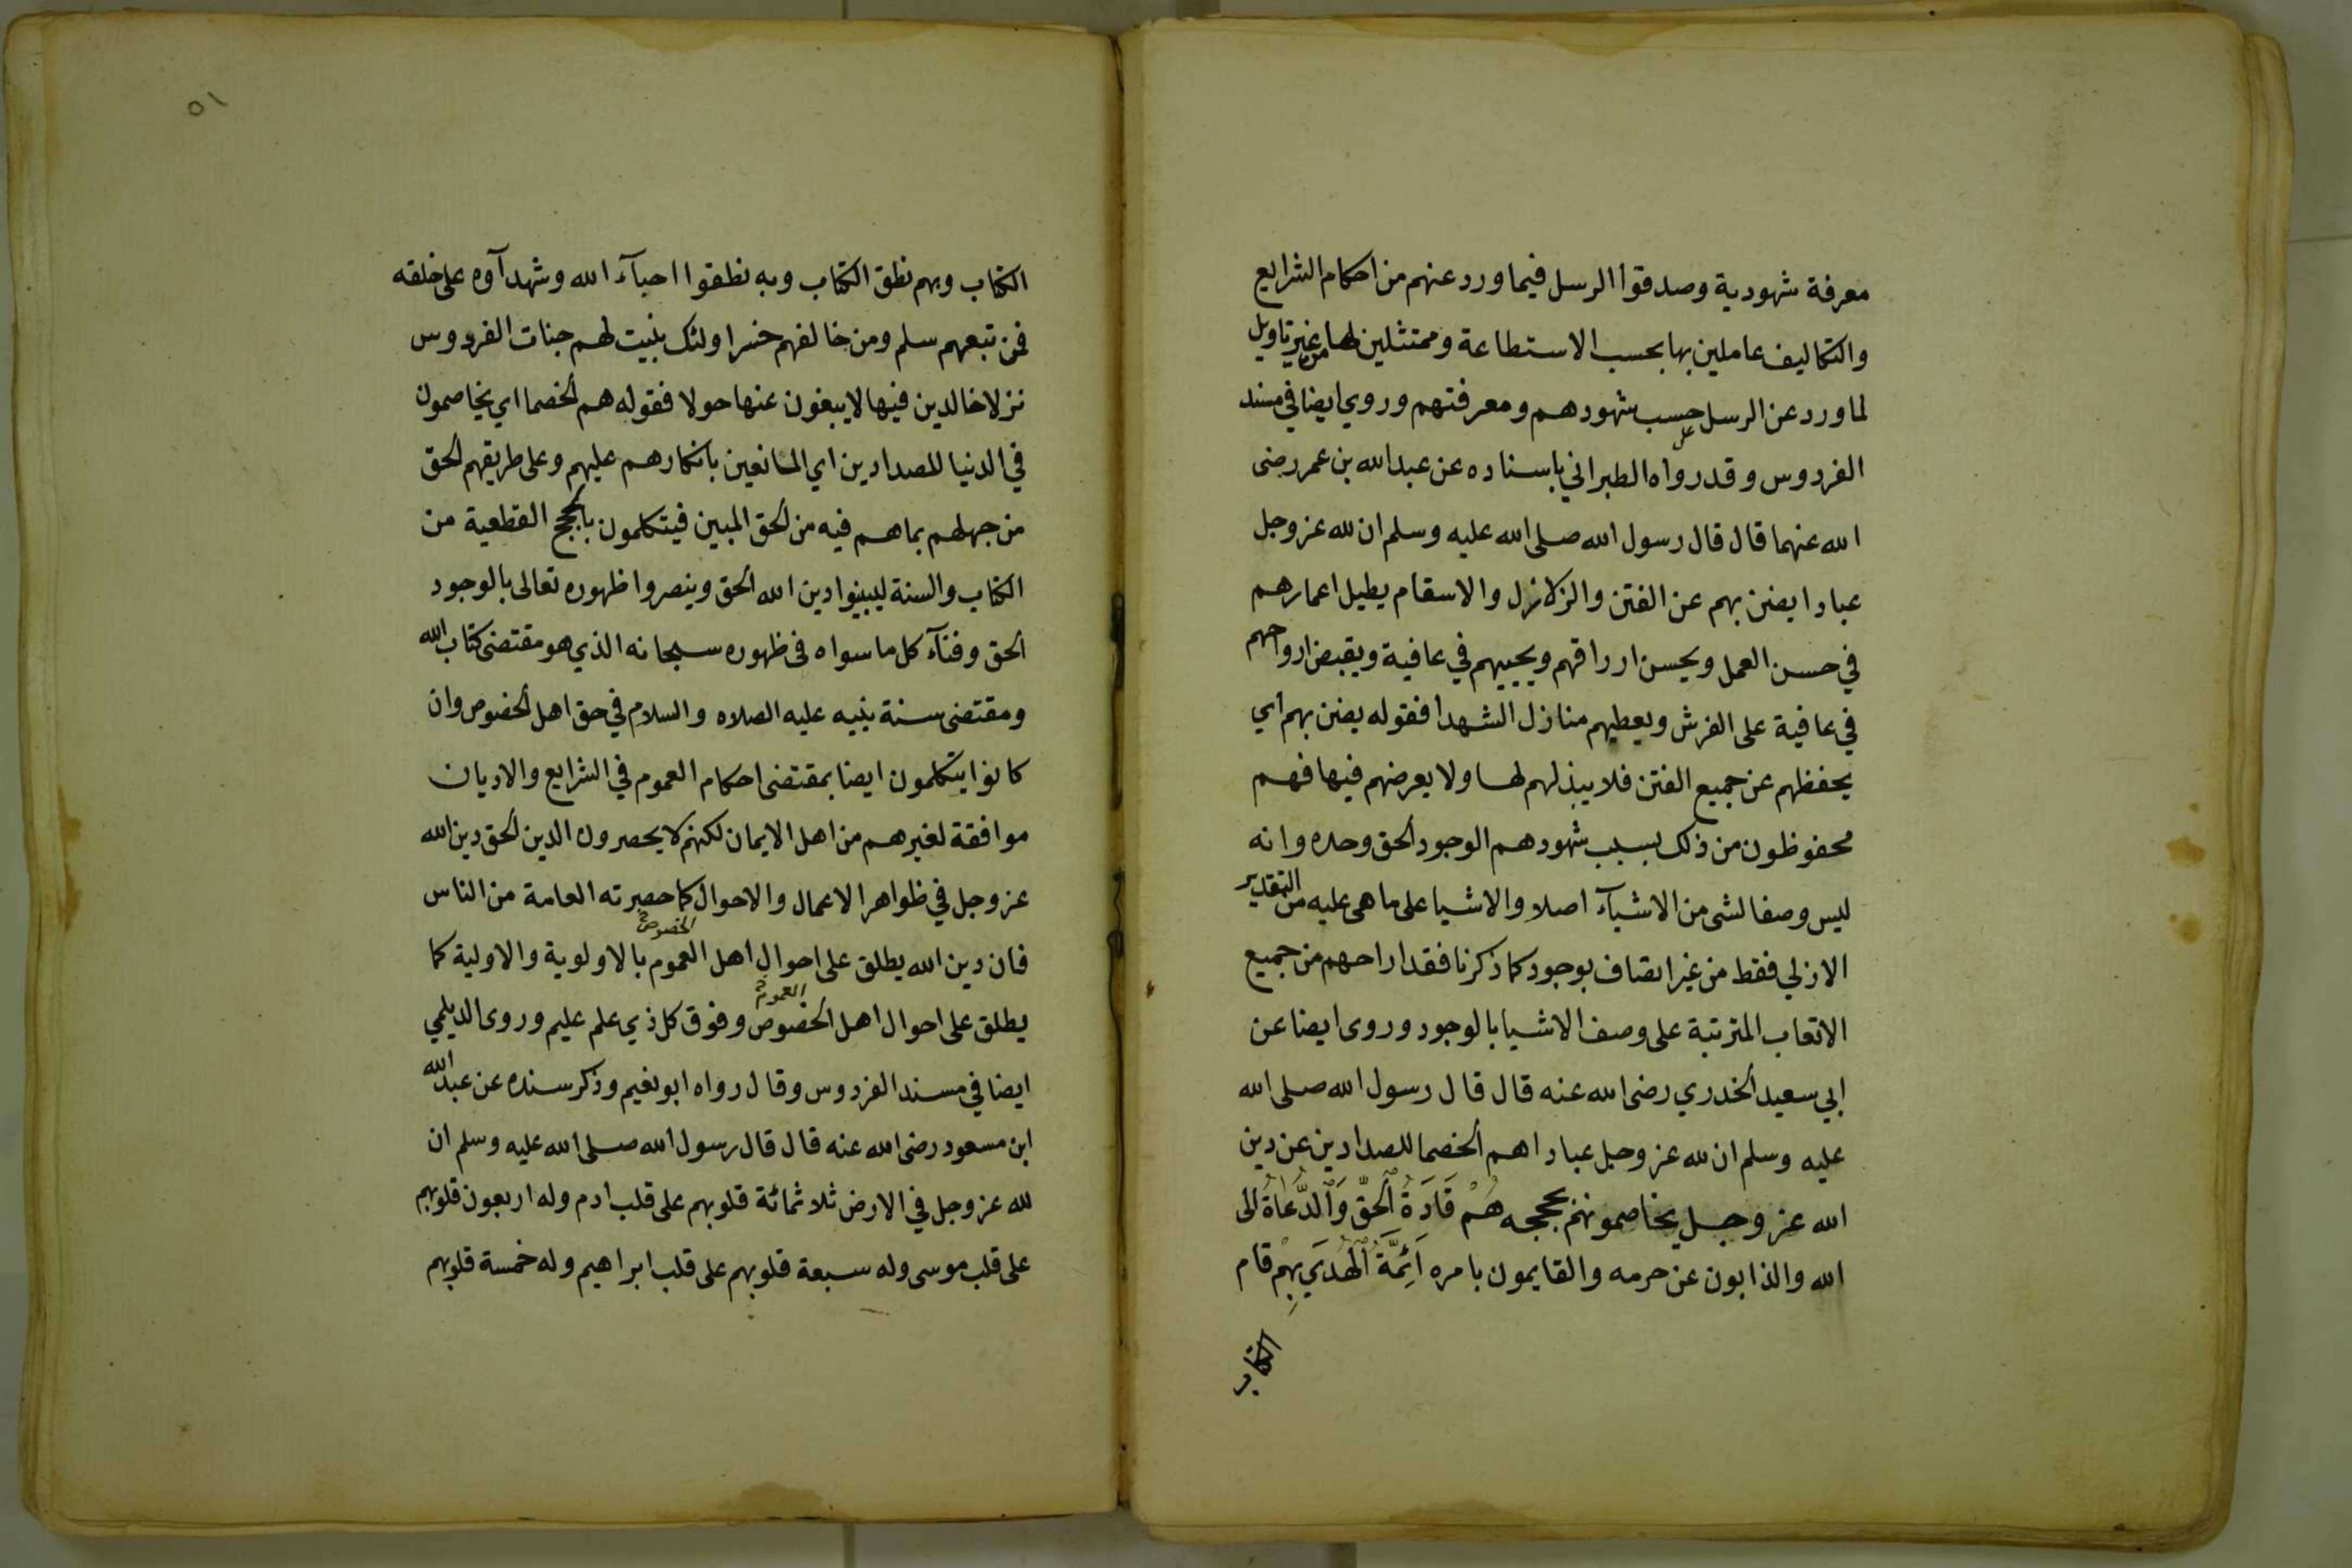 معرفة شهودية وصدقوا الرسل فيما ورد عنهم من احكام الشرايع
والتكاليف عاملين بها بحسب الاستطاعة وممتثلين لها من غير تاويل
لما ورد عن الرسل على حسب شهودهم ومعرفتهم وروي ايضا في مسند
الفردوس وقد رواه الطبراني باسناده عن عبد الله بن عمر رضى
الله عنهما قال قال رسول الله صلى الله عليه وسلم ان لله عز وجل
عبادا يضنن بهم عن الفتن والزلازل والاسقام يطيل اعمارهم
في حسن العمل ويحسن ارزاقهم ويحييهم في عافية ويقبض ارواحهم
في عافية على الفرش ويعطيهم منازل الشهدا فقوله يضنن بهم اي
يحفظهم عن جميع الفتن فلا يبذلهم لها ولا يعرضهم فيها فهم
محفوظون من ذلك بسبب شهودهم الوجود الحق وحده وانه
ليس وصفا لشى من الاشيآء اصلا والاشيا على ما هى عليه من التقدير
الازلي فقط من غير اتصاف بوجود كما ذكرنا فقد اراحهم من جميع
الاتعاب المترتبة على وصف الاشيا بالوجود وروى ايضا عن
ابي سعيد الخدري رضى الله عنه قال قال رسول الله صلى الله
عليه وسلم ان لله عز وجل عبادا هم الخصما للصدادين عن دين
الله عز وجل يخاصمونهم بحججه هُمْ قَادَةُ الْحَقِّ وَالدُّعَاةُ الى
الله والذابون عن حرمه والقايمون بامره اَئِمَّةُ الْهُدَي بِهِمْ قام
الكتاب
٥١
الكتاب وبهم نطق الكتاب وبه نطقوا احبآء الله وشهدآوه على خلقه
فمن تبعهم سلم ومن خالفهم خسر اولئك بنيت لهم جنات الفردوس
نزلا خالدين فيها لا يبغون عنها حولا فقوله هم الخصما اي يخاصمون
في الدنيا للصدادين اي المانعين بانكارهم عليهم وعلى طريقهم الحق
من جهلهم بما هم فيه من الحق المبين فيتكلمون بالحجج القطعية من
الكتاب والسنة ليبينوا دين الله الحق وينصروا ظهوره تعالى بالوجود
الحق وفنآء كل ما سواه فى ظهوره سبحانه الذي هو مقتضى كتاب الله
ومقتضى سنة نبيه عليه الصلاه والسلام في حق اهل الخصوص وان
كانوا يتكلمون ايضا بمقتضى احكام العموم في الشرايع والاديان
موافقة لغيرهم من اهل الايمان لكنهم لا يحصرون الدين الحق دين الله
عز وجل في ظواهر الاعمال والاحوال كما حصرته العامة من الناس
الخصوص
فان دين الله يطلق على احوال اهل العموم بالاولوية والاولية كما
العموم
يطلق على احوال اهل الخصوص وفوق كل ذي علم عليم وروى الديلمي
ايضا في مسند الفردوس وقال رواه ابو نعيم وذكر سنده عن عبد الله
ابن مسعود رضى الله عنه قال قال رسول الله صلى الله عليه وسلم ان
لله عز وجل في الارض ثلاثمائة قلوبهم على قلب ادم وله اربعون قلوبهم
على قلب موسى وله سبعة قلوبهم على قلب ابراهيم وله خمسة قلوبهم